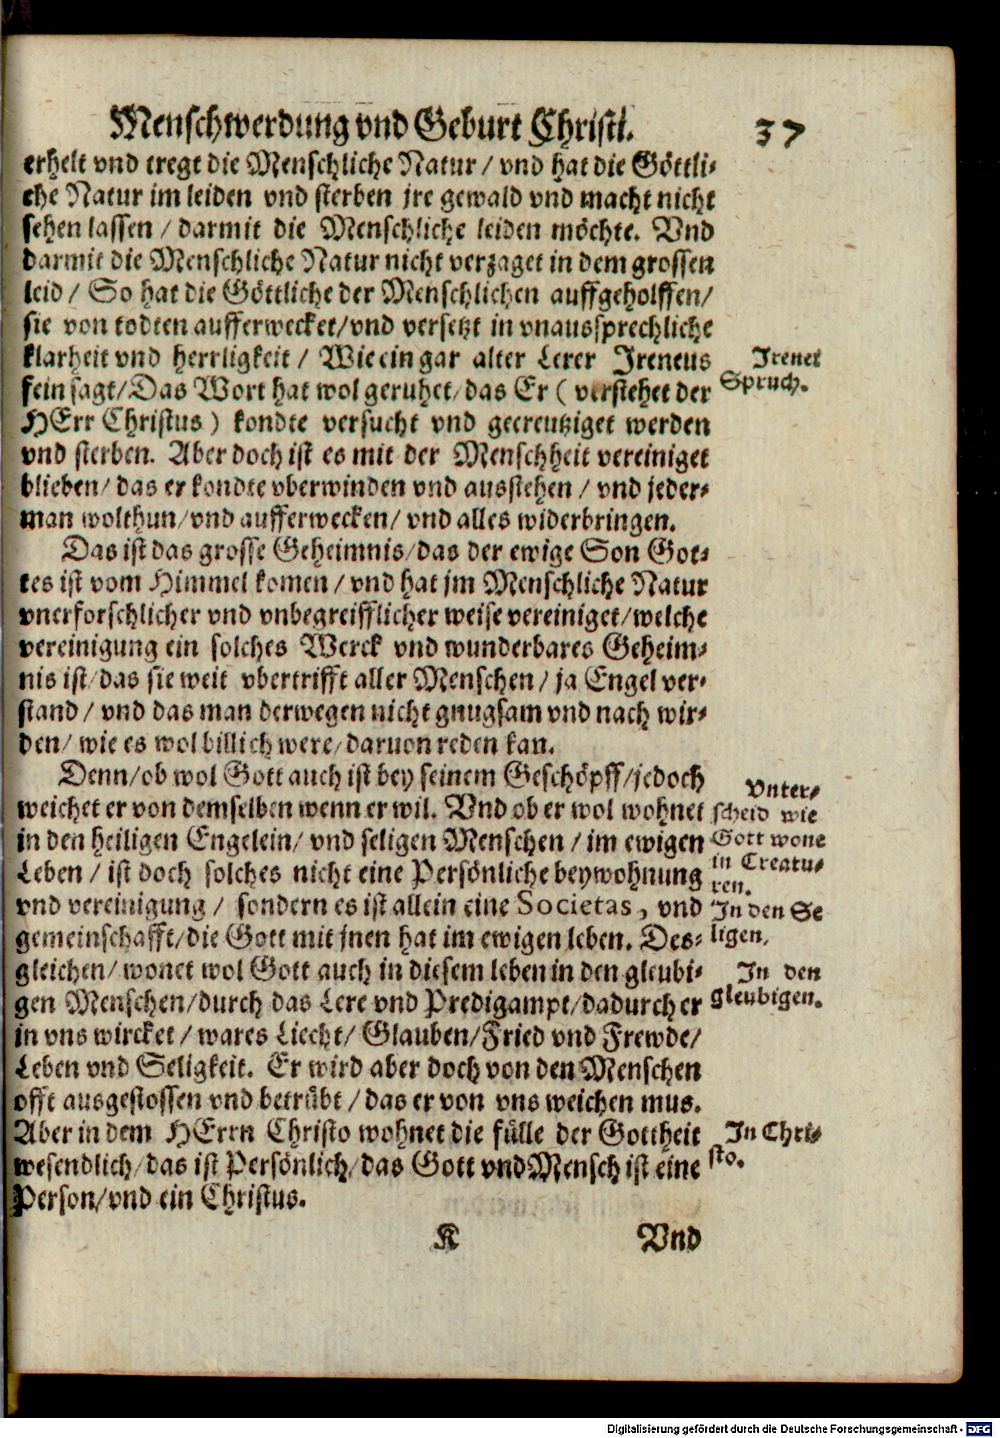 Menschwerdung vnd Geburt Christi. 37
erhelt vnd tregt die Menschliche Natur / vnd hat die Göttli-
che Natur im leiden vnd sterben jre gewald vnd macht nicht
sehen lassen / darmit die Menschliche leiden möchte. Vnd
darmit die Menschliche Natur nicht verzaget in dem grossen
leid / So hat die Göttliche der Menschlichen auffgeholffen/
sie von todten aufferwecket/vnd versetzt in vnaussprechliche
klarheit vnd herrligkeit / Wie ein gar alter Lerer Ireneus
fein sagt/Das Wort hat wol geruhet/das Er ( verstehet der
HErr Christus ) kondte versucht vnd gecreutziget werden
vnd sterben. Aber doch ist es mit der Menschheit vereiniget
blieben/das er kondte vberwinden vnd ausstehen / vnd jeder-
man wolthun/vnd aufferwecken/ vnd alles widerbringen.
Irenei
Spruch.
Das ist das grosse Geheimnis/das der ewige Son Got-
tes ist vom Himmel komen / vnd hat jm Menschliche Natur
vnerforschlicher vnd vnbegreifflicher weise vereiniget/welche
vereinigung ein solches Werck vnd wunderbares Geheim-
nis ist/das sie weit vbertrifft aller Menschen / ja Engel ver-
stand / vnd das man derwegen nicht gnugsam vnd nach wir-
den/ wie es wol billich were/daruon reden kan.
Denn/ob wol Gott auch ist bey seinem Geschöpff/jedoch
weichet er von demselben wenn er wil. Vnd ob er wol wohnet
in den heiligen Engelein/ vnd seligen Menschen / im ewigen
Leben / ist doch solches nicht eine Persönliche beywohnung
vnd vereinigung / sondern es ist allein eine Societas, vnd
gemeinschafft/die Gott mit jnen hat im ewigen leben. Des-
gleichen/wonet wol Gott auch in diesem leben in den gleubi-
gen Menschen/durch das Lere vnd Predigampt/dadurch er
in vns wircket / wares Liecht/ Glauben/Fried vnd Frewde/
Leben vnd Seligkeit. Er wird aber doch von den Menschen
offt ausgestossen vnd betrübt / das er von vns weichen mus.
Aber in dem HErrn Christo wohnet die fülle der Gottheit
wesendlich/das ist Persönlich/das Gott vnd Mensch ist eine
Person/vnd ein Christus.
Vnter-
scheid wie
Gott wone
in Creatu-
ren.
In den Se
ligen.
In den
gleubigen.
In Chri-
sto.
K Vnd
Digitalisierung gefördert durch die Deutsche Forschungsgemeinschaft - DFG